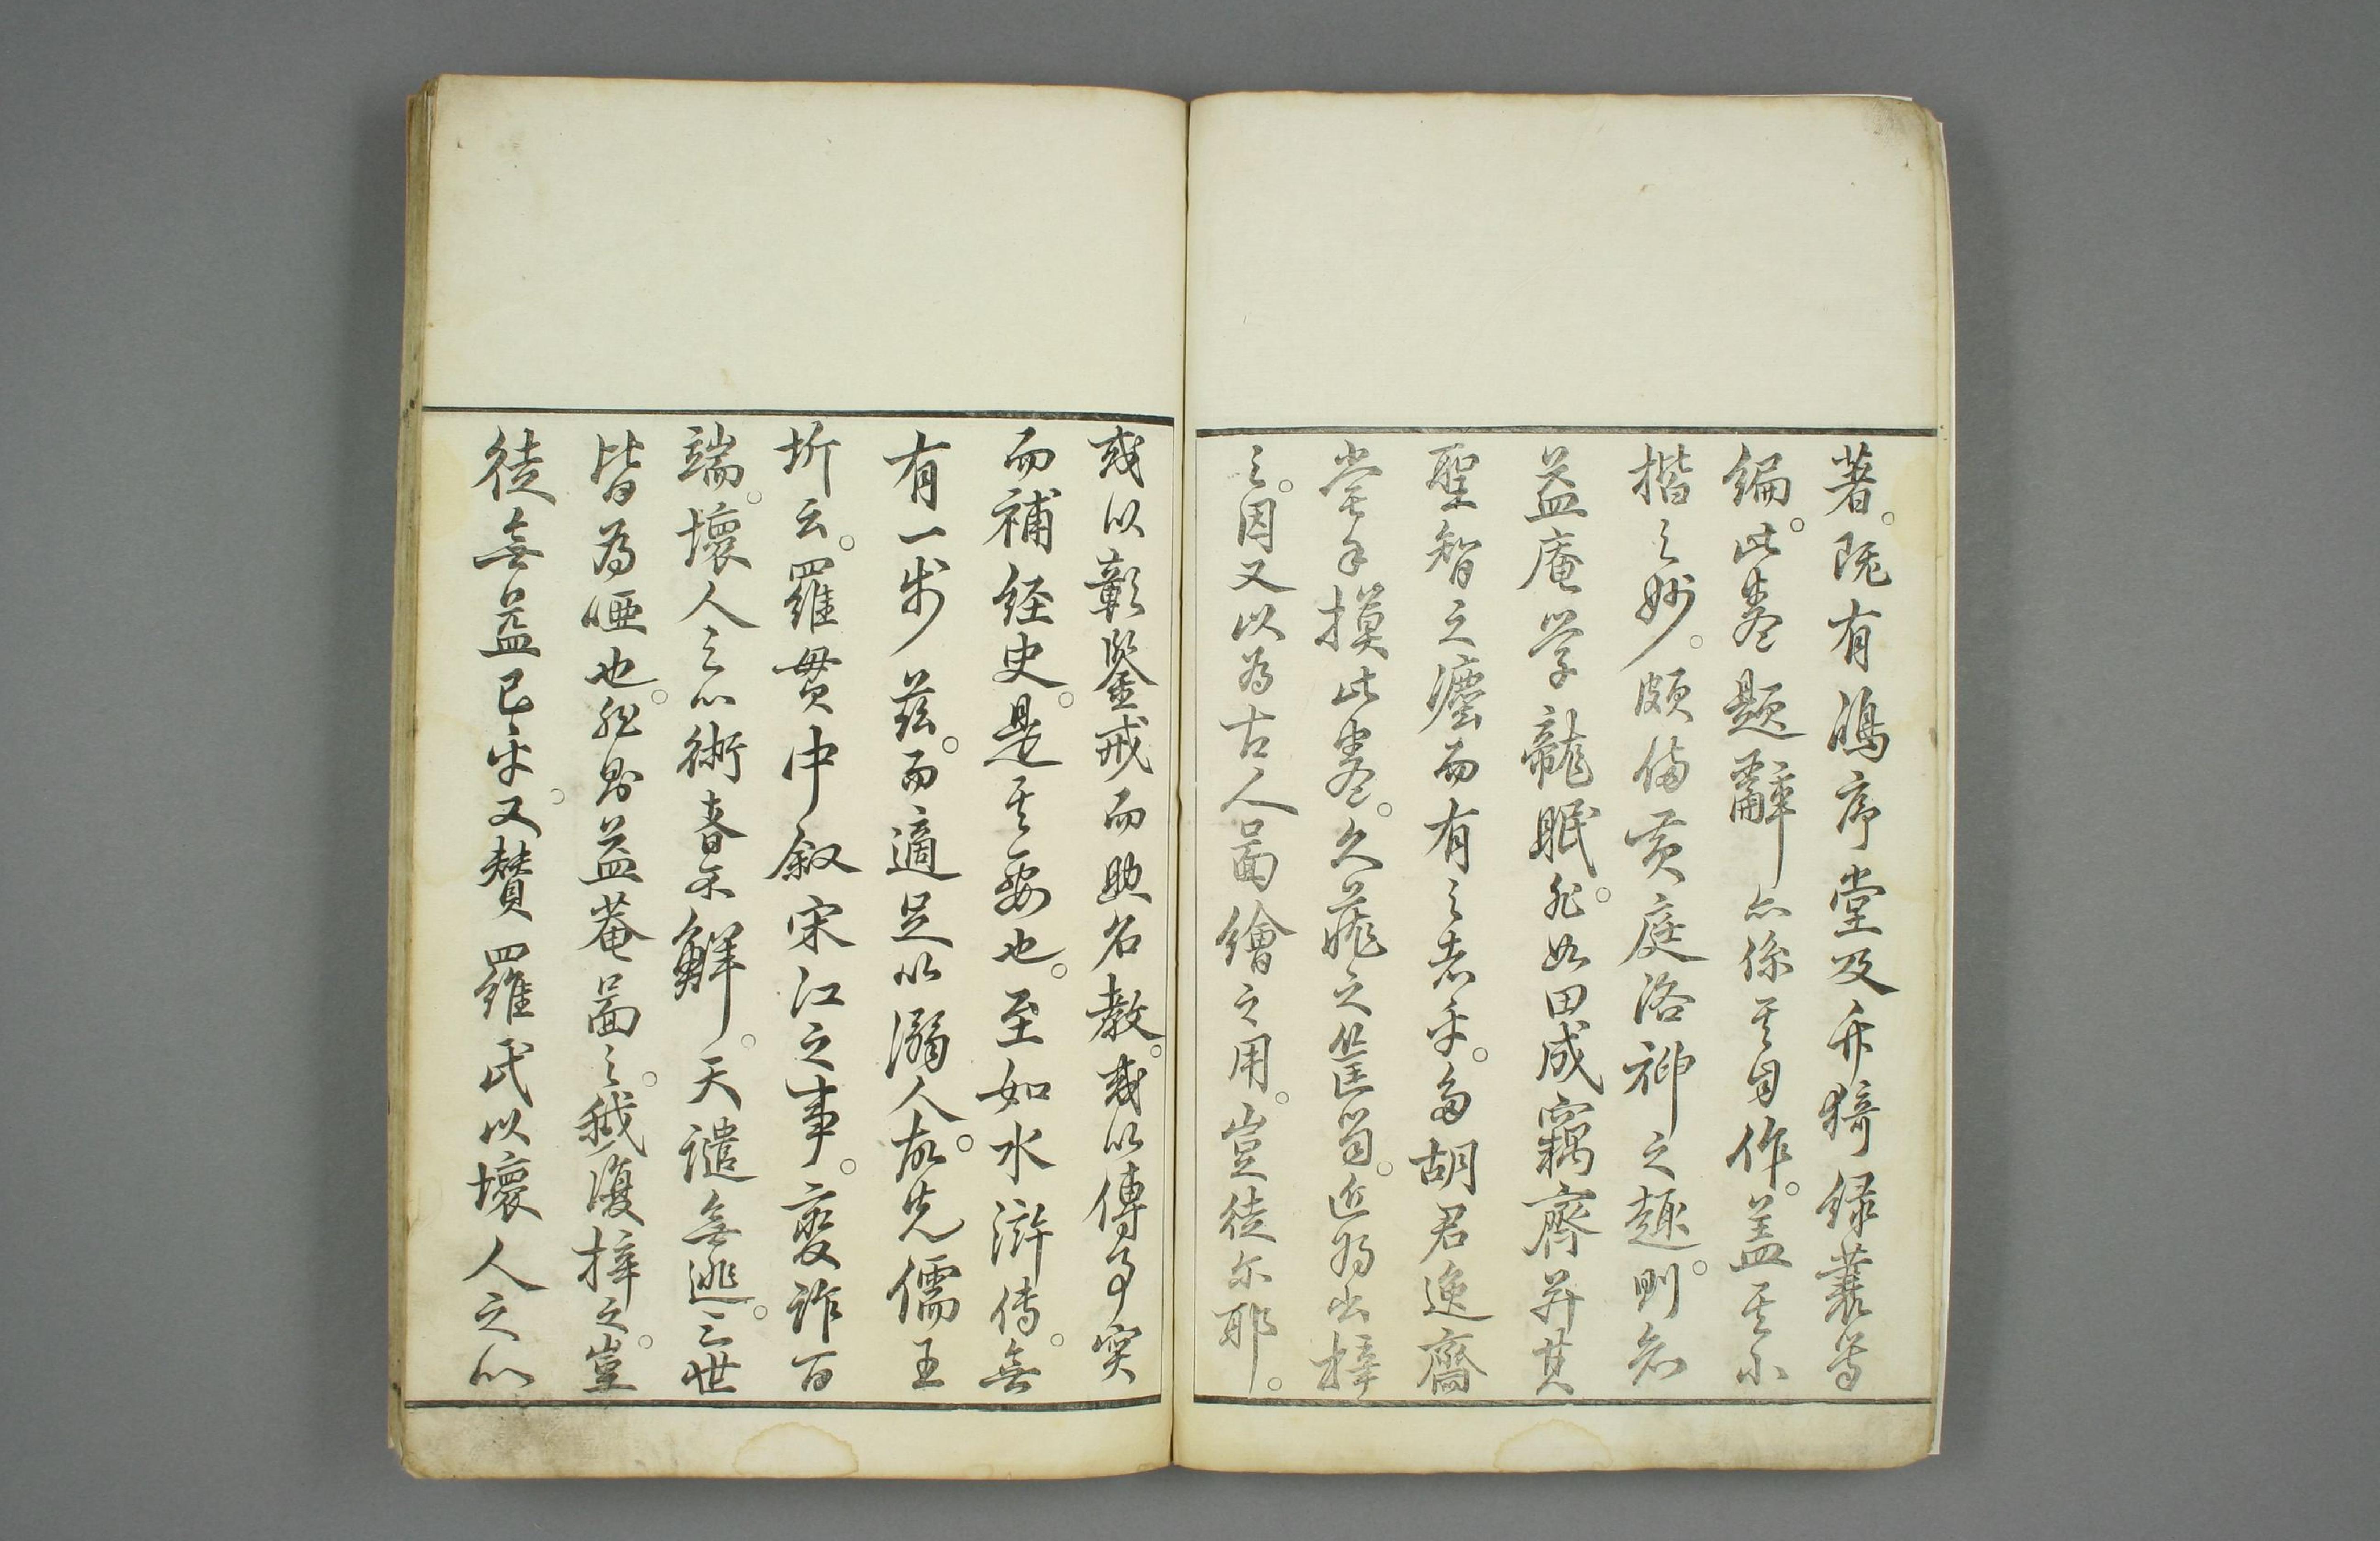 著。既有鴻序堂及弁猗録叢等
編。此巻題辭亦係其自作。蓋其小
楷之妙。頗備黄庭洛神之趣。則知
益庵学龍眠。非如田成竊齊并其
聖智之法而有之者乎。友胡君逸齋
嘗手摸此巻。久蔵之篋笥。近將出梓
之。因又以為古人啚繪之用。豈徒尔耶。
或以彰鑒戒而助名教。或以傳事實
而補経史。是其要也。至如水滸傳。無
有一步茲。而適足以溺人。故先儒王
圻云。羅貫中叙宋江之事。変詐百
端。壞人之心術者不鮮。天譴無逃。三世
皆為啞也。然則益菴啚之。我復梓之。豈
徒無益已乎。又賛羅氏以壞人之心